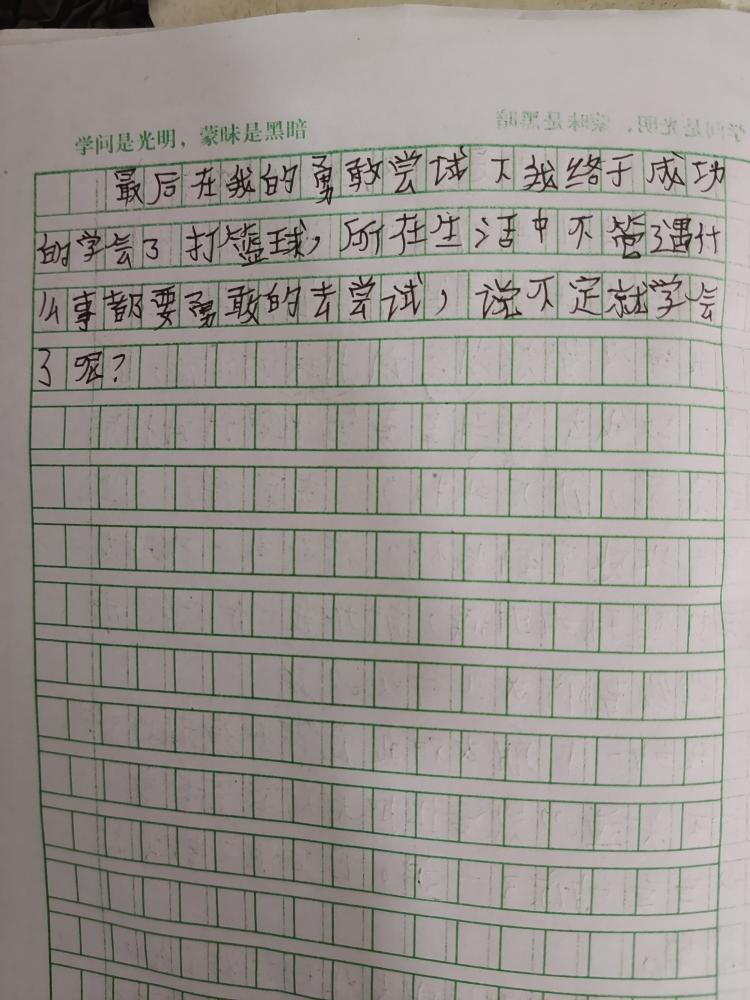 学问是光明，蒙昧是黑暗
最后在我的勇敢尝试下我终于成功
的学会了打篮球，所在生活中不管遇什
么事都要勇敢的去尝试，说不定就学会
了呢？